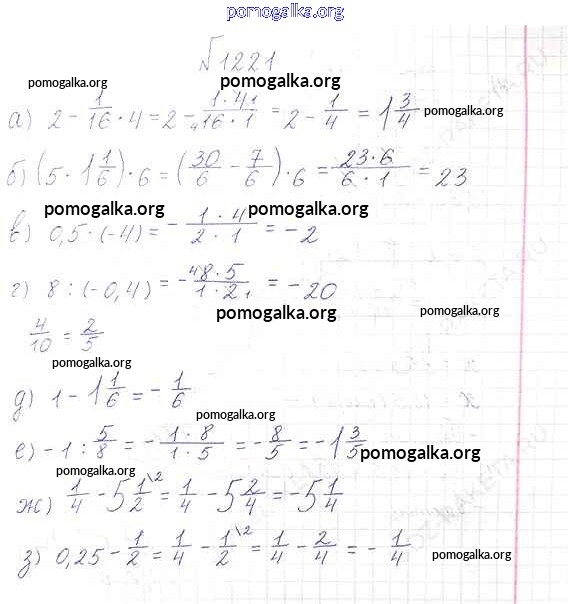 pomogalka.org
№1221
pomogalka.org pomogalka.org
а) 2 - 1/16 · 4 = 2 - 1·4 1/4 16·1 = 2 - 1/4 = 1 3/4 pomogalka.org
б) (5 · 1 1/6) · 6 = (30/6 - 7/6) · 6 = 23·6/6·1 = 23
pomogalka.org pomogalka.org
в) 0,5 · (-4) = - 1·4/2·1 = -2
г) 8 : (-0,4) = - 4 8·5/1·2 1 = -20
pomogalka.org pomogalka.org
4/10 = 2/5
pomogalka.org
д) 1 - 1 1/6 = - 1/6
pomogalka.org
е) -1 : 5/8 = - 1·8/1·5 = - 8/5 = -1 3/5 pomogalka.org
pomogalka.org
ж) 1/4 - 5 1/2 \2 = 1/4 - 5 2/4 = -5 1/4
з) 0,25 - 1/2 = 1/4 - 1/2 \2 = 1/4 - 2/4 = - 1/4 pomogalka.org